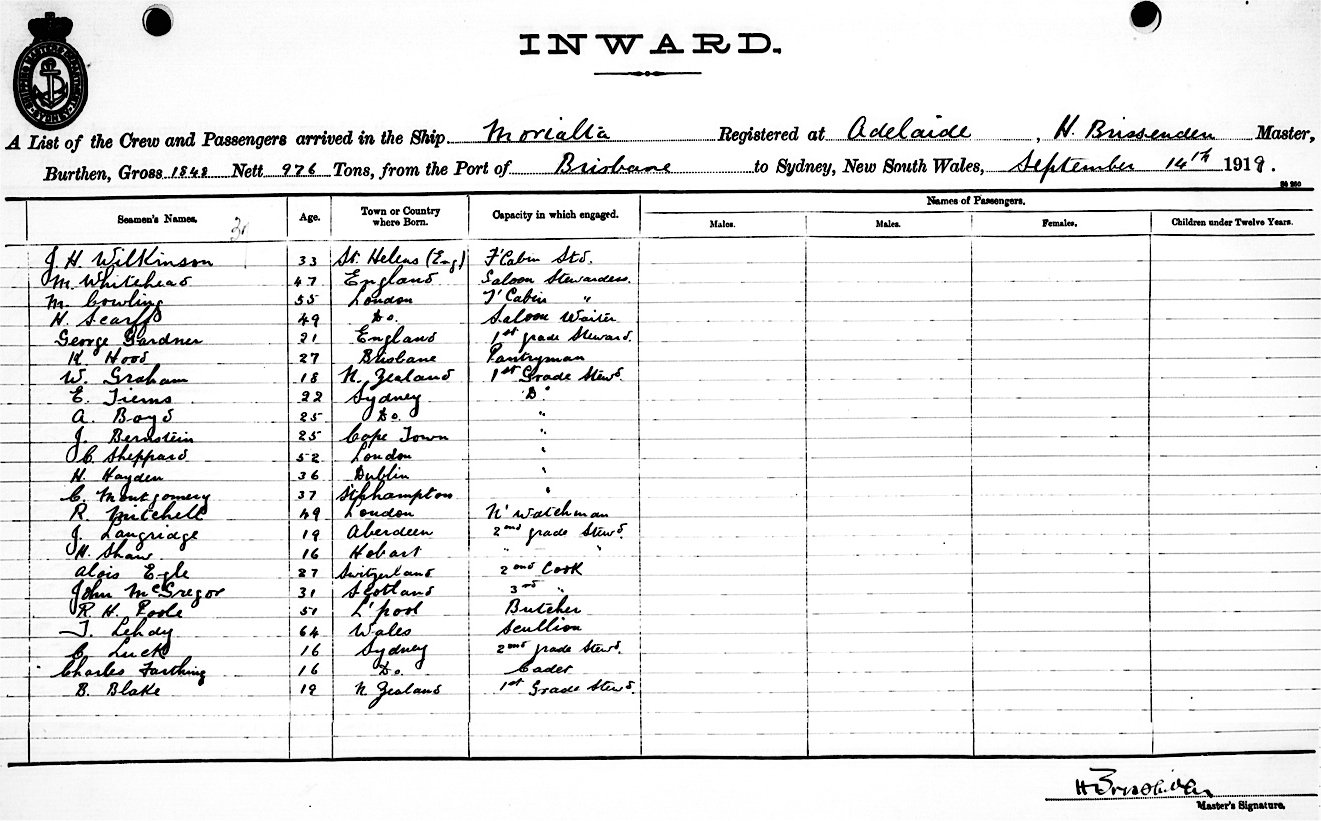 SHIPPING MASTER'S DEPARTMENT SYDNEY
INWARD.
A List of the Crew and Passengers arrived in the Ship Morialta Registered at Adelaide, H. Brissenden Master,
Burthen, Gross 1848 Nett 976 Tons, from the Port of Brisbane to Sydney, New South Wales, September 14th 1919.
Seamen's Names. Age. Town or Country where Born. Capacity in which engaged. Names of Passengers.
Males. Males. Females. Children under Twelve Years.
J. H. Wilkinson 33 St. Helens (Eng) F'Cabin Std.
M. Whitehead 47 England Saloon Stewardess.
M. Cowling 55 London F'Cabin "
H. Scarff 49 Do. Saloon Waiter
George Gardner 21 England 1st grade Steward.
H Hood 27 Brisbane Pantryman
W. Graham 18 N. Zealand 1st Grade Stewd.
E. Tiems 22 Sydney Do
A. Boyd 25 Do. "
J. Bernstein 25 Cape Town "
C. Sheppard 52 London "
H. Hayden 36 Dublin "
C. Montgomery 37 S'thhampton "
R. Mitchell 49 London N' Watchman
J. Langridge 19 Aberdeen 2nd grade Stewd.
H. Shaw 16 Hobart " "
Alois Egle 27 Switzerland 2nd Cook
John McGregor 31 Scotland 3rd "
R. H. Poole 51 L'pool Butcher
T. Lehdy 64 Wales Scullion
C. Luck 16 Sydney 2nd grade Stewd.
Charles Farthing 16 Do. Cadet
B. Blake 19 N Zealand 1st Grade Stewd.
H Brissenden
Master's Signature.